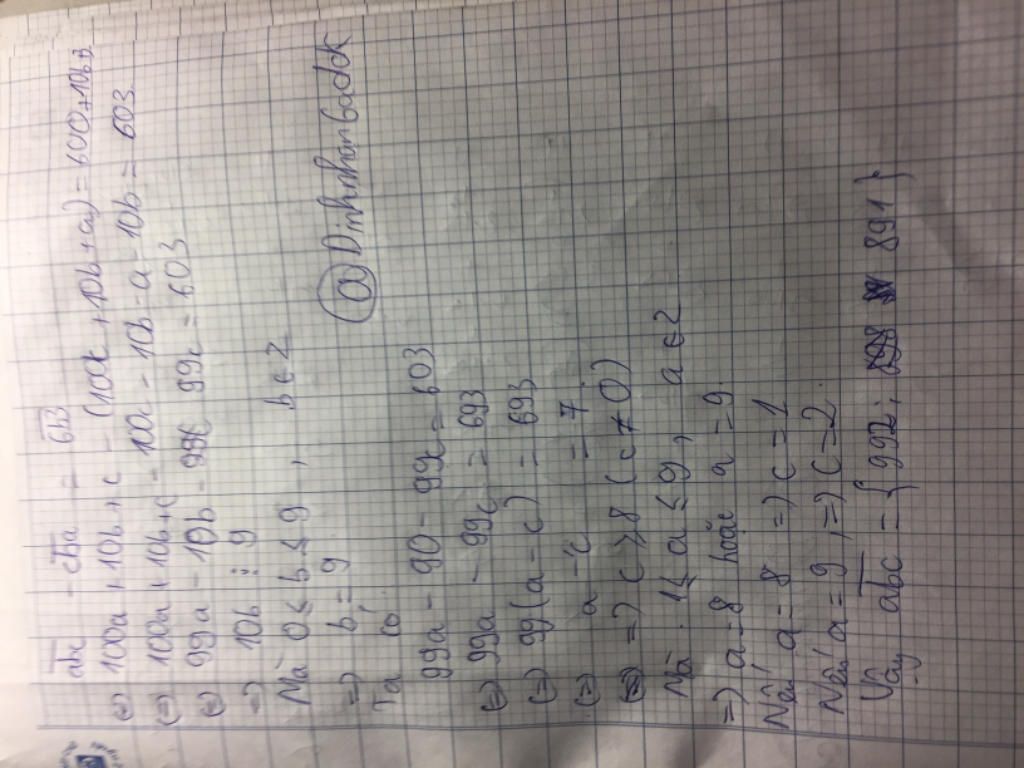 abc - cba = 6b3
(=) 100a + 10b + c - (100c + 10b + a) = 600 + 10b + 3
(=) 100a + 10b + c - 100c - 10b - a - 10b = 603
(=) 99a - 10b - 99c = 603
=) 10b ⋮ 9
Mà 0 ≤ b ≤ 9 , b ∈ Z
=) b = 9
Ta có
99a - 90 - 99c = 603
(=) 99a - 99c = 693
(=) 99(a - c) = 693
(=) a - c = 7
=) c ≥ 8 (c ≠ 0)
Mà 1 ≤ a ≤ 9 , a ∈ Z
=) a = 8 hoặc a = 9
Nếu a = 8 =) c = 1
Nếu a = 9 , =) c = 2
Vậy abc = { 992 ; 891 }
@Dinhnham6adck